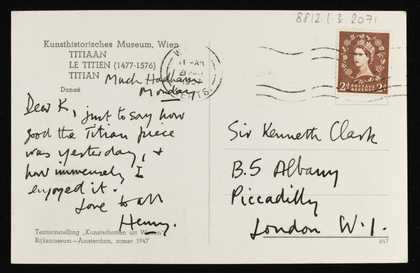 8812.1.3.2071
Kunsthistorisches Museum, Wien
TITIAAN
LE TITIEN (1477-1576)
TITIAN
Danaë
Much Hadham
Monday
Dear K, just to say how
good the Titian piece
was yesterday, &
how immensely I
enjoyed it.
Love to all
Henry.
Tentoonstelling „Kunstschatten uit Wenen"
Rijksmuseum—Amsterdam, zomer 1947
HERTS.
2d POSTAGE REVENUE 2d
Sir Kenneth Clark
B.5 Albany
Piccadilly
London W.1.